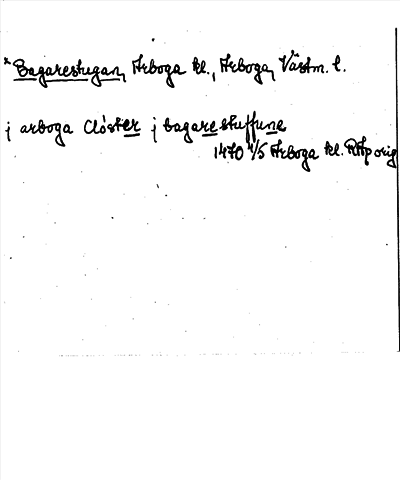 * Bagarestugan, Arboga kl., Arboga, Västm. l.
j arboga Closter j bagarestuffune
1470 4/5 Arboga kl. RAp orig